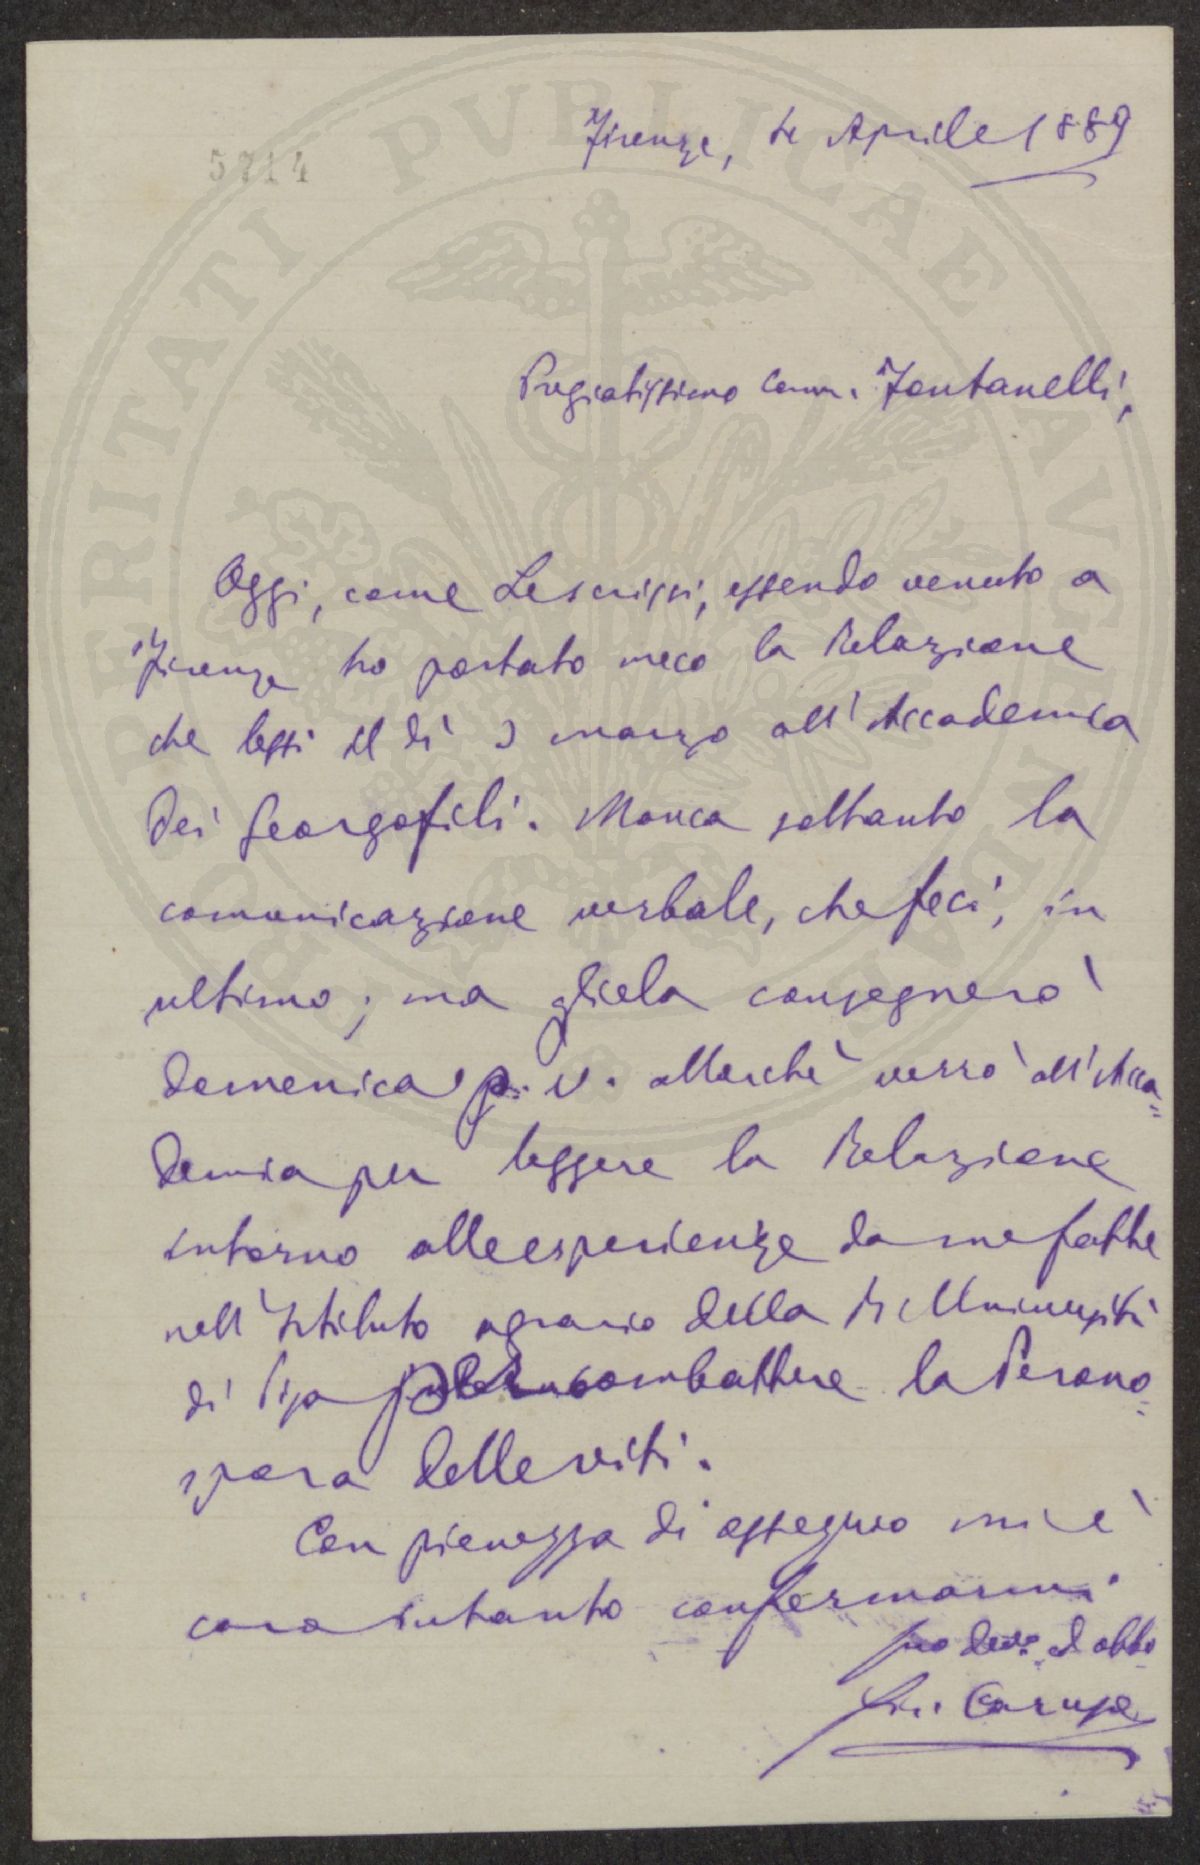 5714
Firenze, 4 Aprile 1889
Pregiatissimo Comm. Fontanelli,
Oggi, come Le scrissi, essendo venuto a
Firenze ho portato meco la Relazione
che lessi il dì 3 marzo all'Accademia
dei Georgofili. Manca soltanto la
comunicazione verbale, che feci, in
ultimo; ma gliela consegnerò
domenica p. v. allorchè verrò all'Acca=
demia per leggere la Relazione
intorno alle esperienze da me fatte
nell'Istituto agrario della R. Università
di Pisa per combattere la Perono=
spora delle viti.
Con pienezza di ossequio mi è
caro intanto confermarmi
suo devo. ed obbo
Gir. Caruso
PERITATI PVBLICAE AVGENDAE